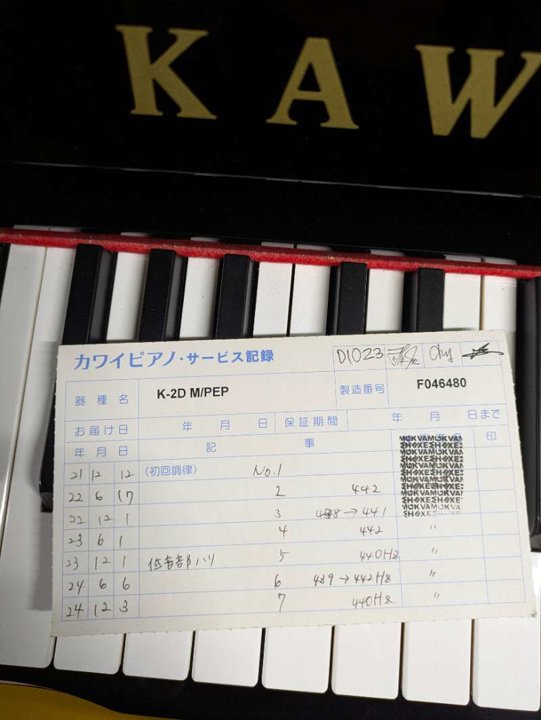 KAW
カワイピアノ・サービス記録 D1023
器種名 K-2D M/PEP 製造番号 F046480
お届け日 年 月 日 保証期間 年 月 日まで
年 月 日 記事 印
21 12 12 (初回調律) No.1
22 6 17 2 442
22 12 1 3 438→441
23 6 1 4 442 〃
23 12 1 低音部ハリ 5 440Hz 〃
24 6 6 6 439→442Hz 〃
24 12 3 7 440Hz 〃